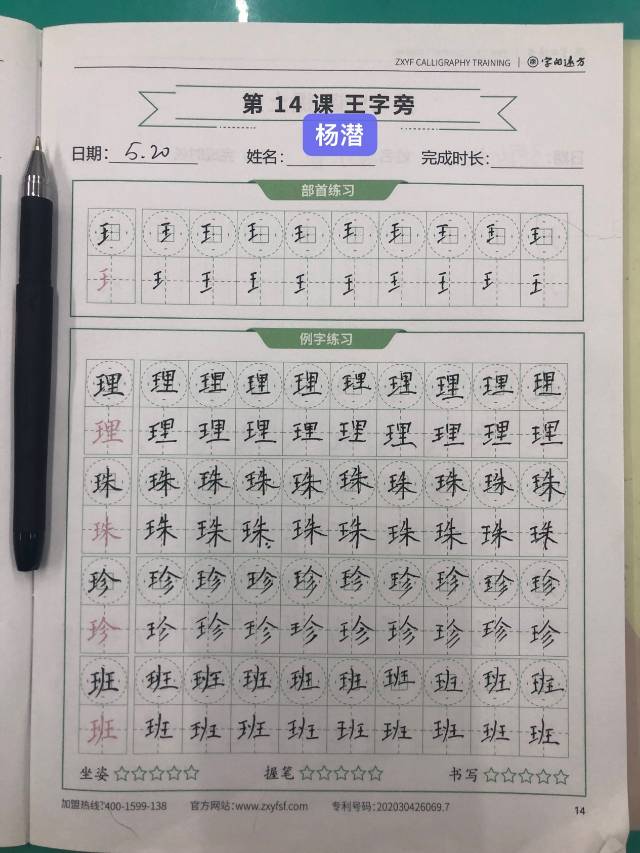 ZXYF CALLIGRAPHY TRAINING | 字的远方
第 14 课 王字旁
杨潜
日期: 5.20 姓名: 完成时长:
部首练习
王 王 王 王 王 王 王 王 王 王
王 王 王 王 王 王 王 王 王 王
例字练习
理 理 理 理 理 理 理 理 理 理
理 理 理 理 理 理 理 理 理 理
珠 珠 珠 珠 珠 珠 珠 珠 珠 珠
珠 珠 珠 珠 珠 珠 珠 珠 珠 珠
珍 珍 珍 珍 珍 珍 珍 珍 珍 珍
珍 珍 珍 珍 珍 珍 珍 珍 珍 珍
班 班 班 班 班 班 班 班 班 班
班 班 班 班 班 班 班 班 班 班
坐姿☆☆☆☆☆ 握笔☆☆☆☆☆ 书写☆☆☆☆☆
加盟热线:400-1599-138 官方网站:www.zxyfsf.com 专利号码:202030426069.7
14